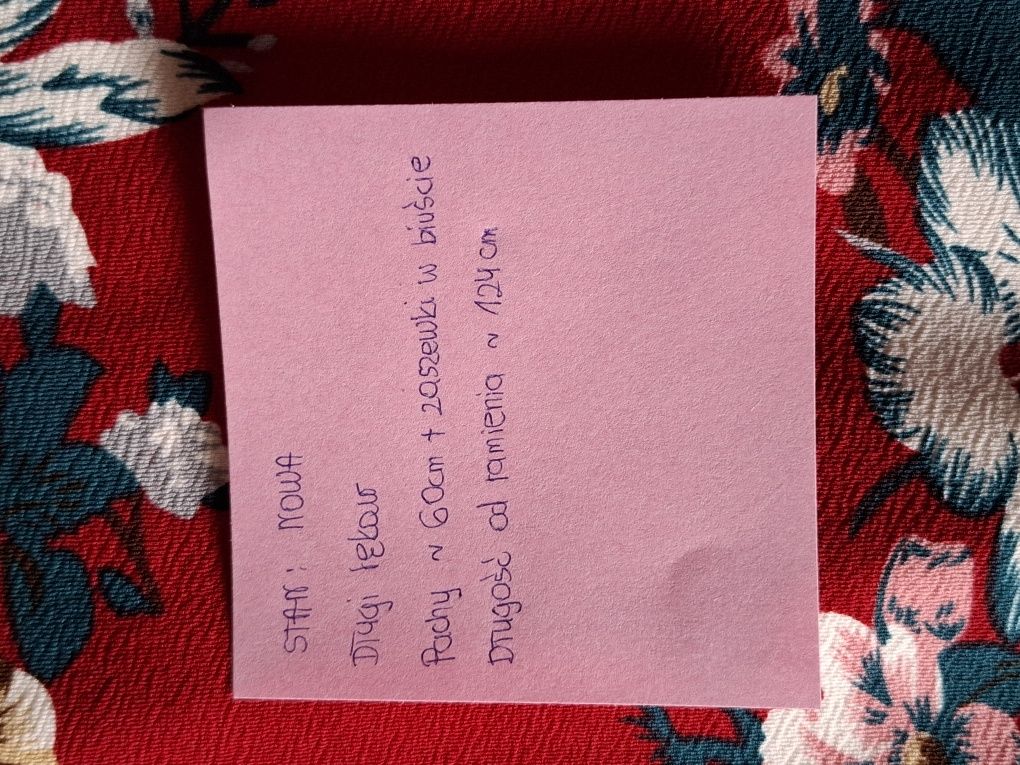 STAN: NOWA
Długi rękaw
Pachy ~ 60cm + zaszewki w biuście
Długość od ramienia ~ 124 cm